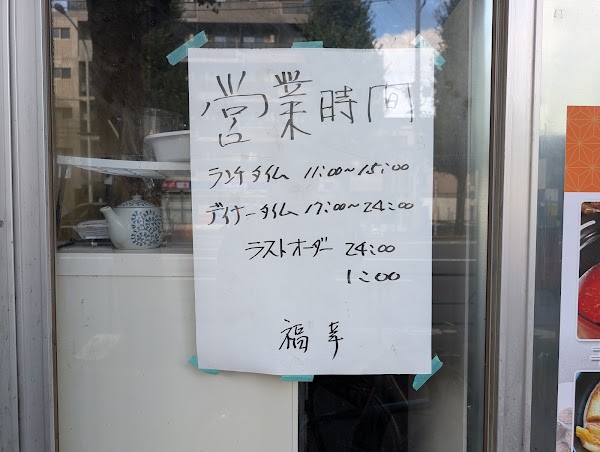 営業時間
ランチタイム 11:00~15:00
ディナータイム 17:00~24:00
ラストオーダー 24:00
1:00
福幸